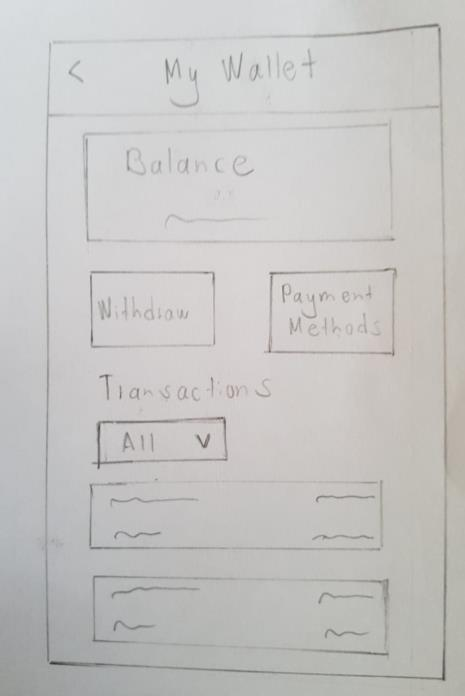 < My Wallet
Balance
Withdraw
Payment
Methods
Transactions
All v